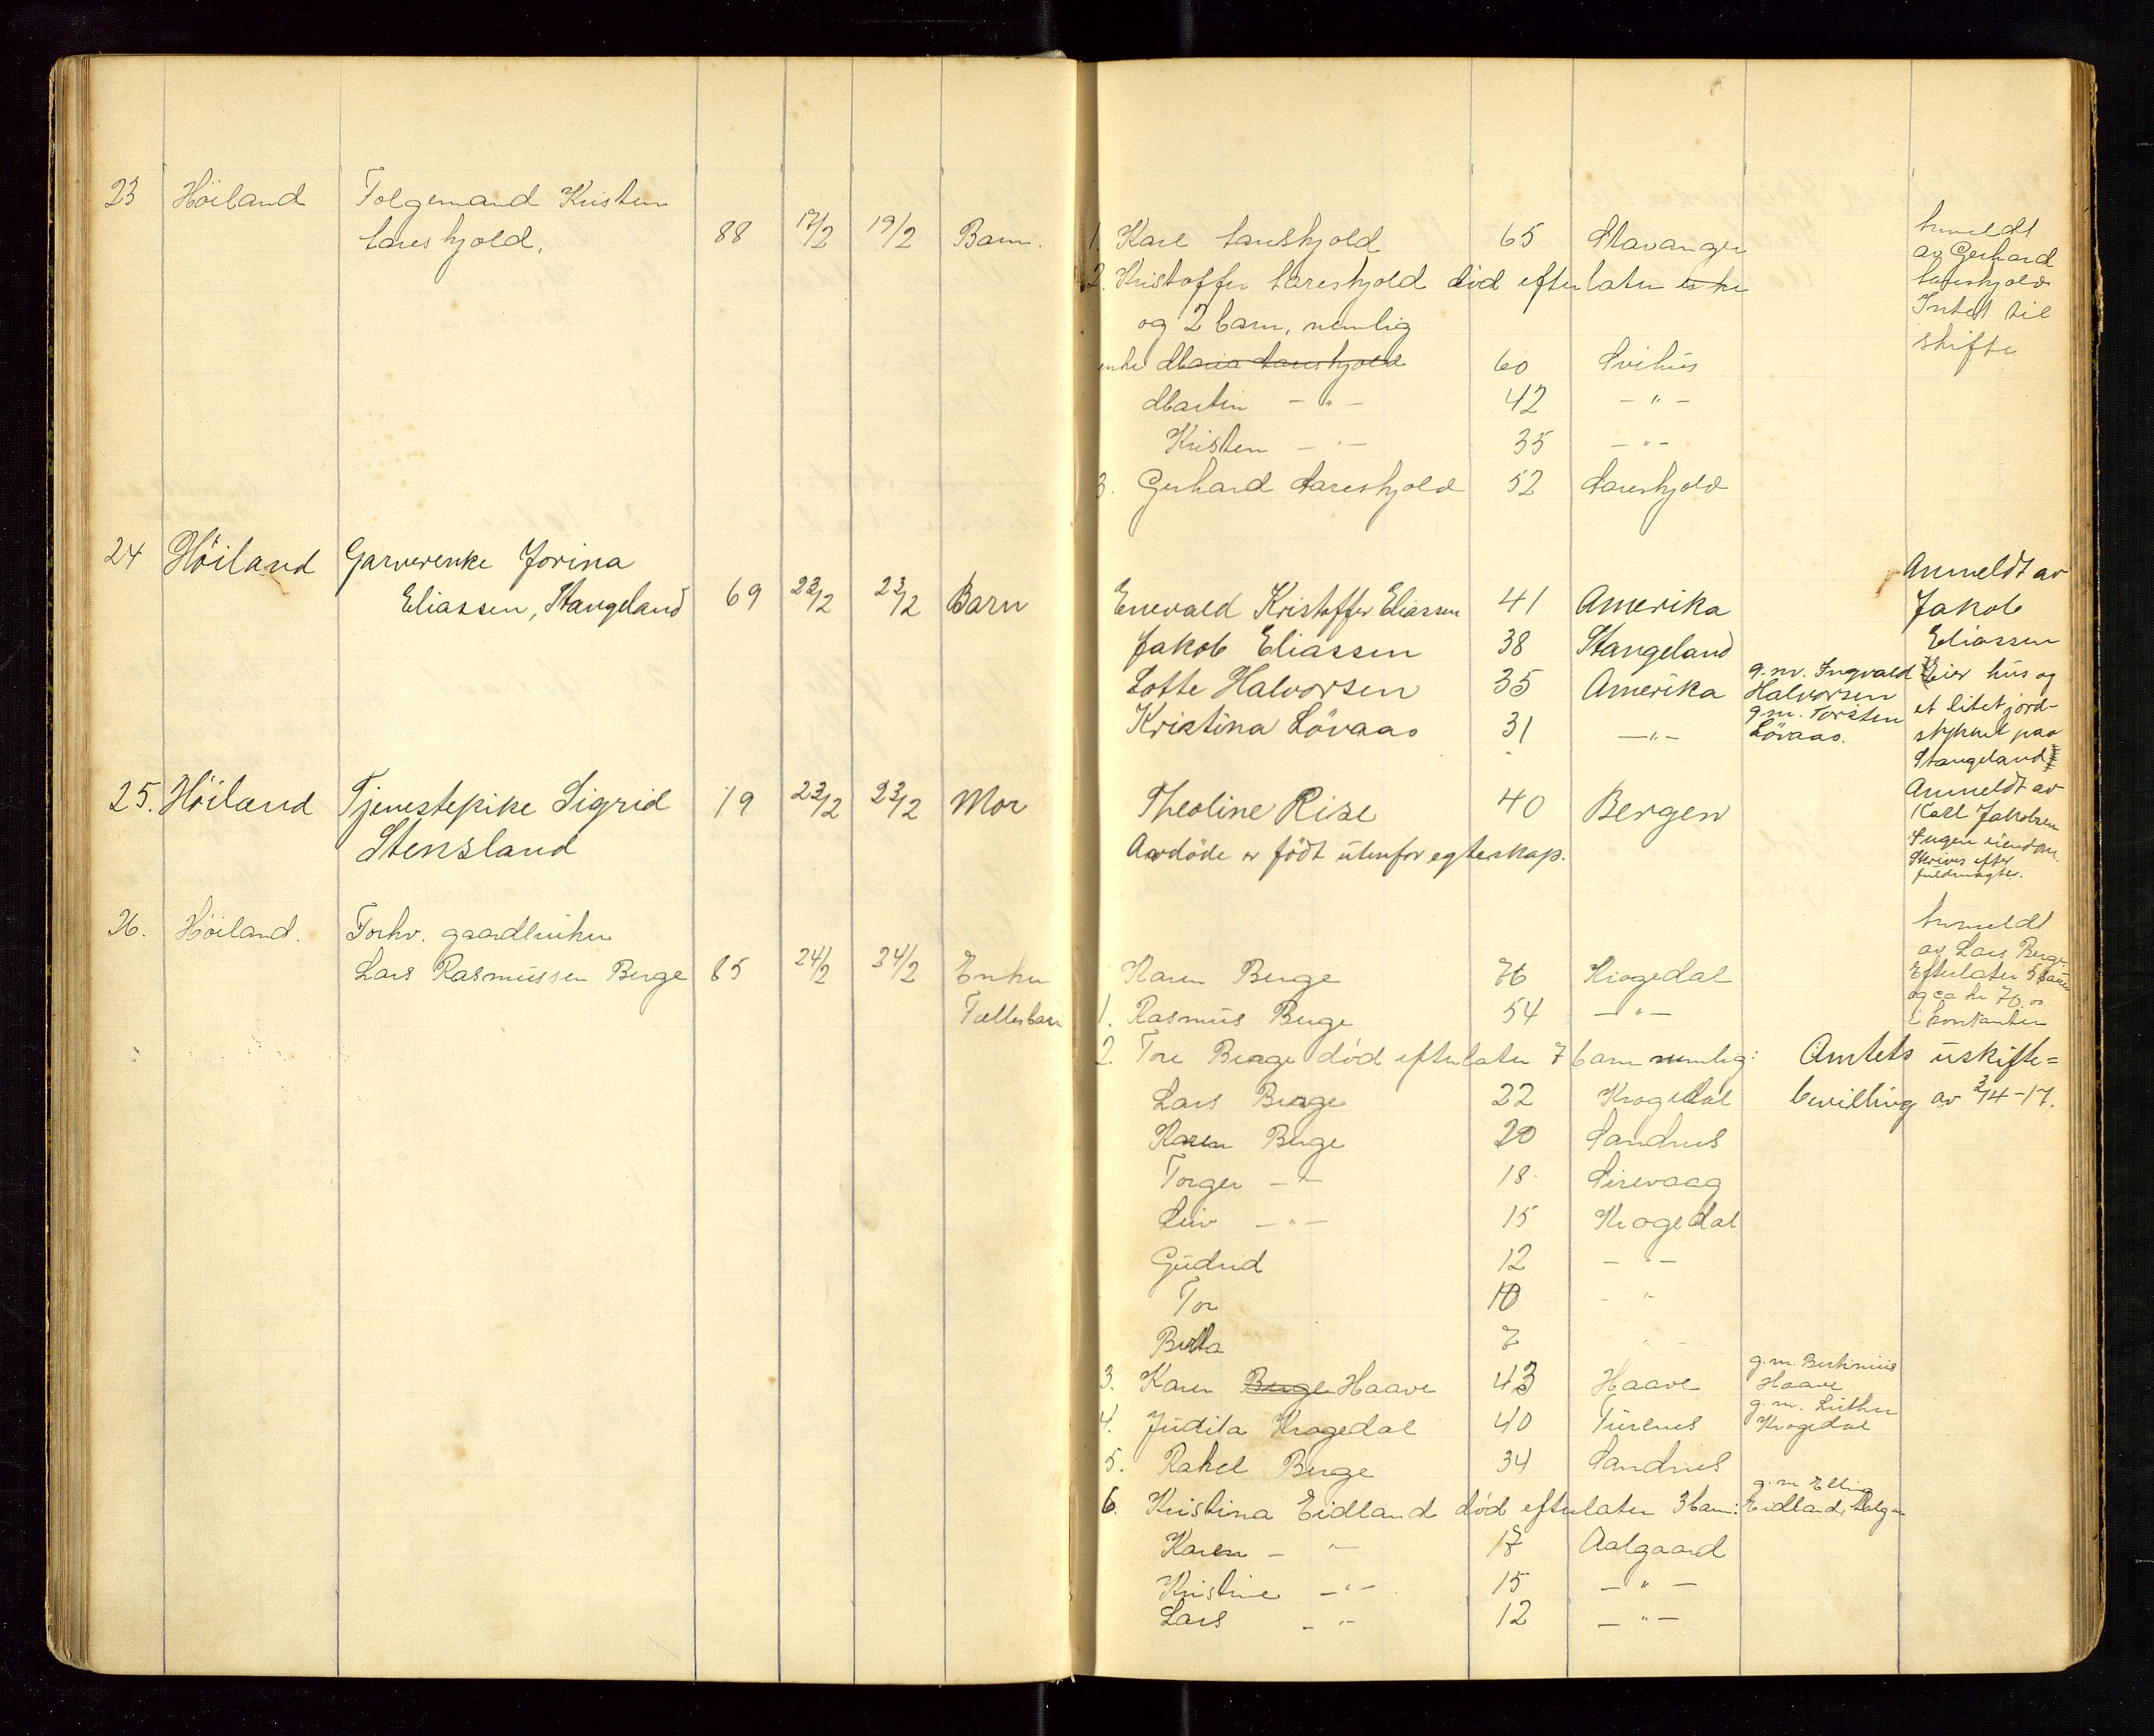 23 Höiland Folgemand Kristen
Aareskjold, 88 17/2 19/2 Barn. 1. Karl Aareskjold 65 Stavanger Anmeldt
av Gerhard
2. Kristoffer Aareskjold död efterlater enke Aareskjold
og 2 barn, nemlig Intet til
skifte
enke Maria Aareskjold 60 Svihus
Martin - " - 42 - " -
Kristen - " - 35 - " -
3. Gerhard Aareskjold 52 Aareskjold
24 Höiland Garverenke Jorina Anmeldt av
Eliassen, Stangeland 69 23/2 23/2 Barn Enevald Kristoffer Eliassen 41 Amerika Jakob
Jakob Eliassen 38 Stangeland Eliassen
Lotte Halvorsen 35 Amerika g.m. Ingvald Halvorsen Eier hus og
et litet jord-
Kristina Lövaas 31 - " - g.m. Torsten Lövaas. stykke paa
Stangeland
25. Höiland Tjenestepike Sigrid 19 23/2 23/2 Mor Theoline Rise 40 Bergen Anmeldt av
Karl Jakobsen
Stensland Avdöde er födt utenfor egteskap. Ingen eiendom.
Skrives efter
fuldmagter.
26. Höiland. Forhv. gaardbruker Anmeldt
Lars Rasmussen Berge 85 24/2 24/2 Enke Karen Berge 76 Krogedal av Lars Berge.
Efterlater 5 barn
og ca kr 70.00
Fællesbarn 1. Rasmus Berge 54 - " - i kontanter
2. Tore Berge död efterlater 7 barn nemlig: Amtets uskifte=
Lars Berge 22 Krogedal bevilling av 3/4-17.
Karen Berge 20 Sandnes
Torger - " - 18 Sirevaag
Siv - " - 15 Krogedal
Gudrid 12 - " -
Tor 10 - " -
Berta 7 " -
3. Karen Berge Haave 43 Haave g.m. Bertinius Haave
4. Judita Krogedal 40 Tunes g.m. Luther Krogedal
5. Rakel Berge 34 Sandnes
6. Kristina Eidland död efterlater 3 barn: g.m. Elling Eidland,
Karen - " - Aalgaard
Kristine - " - 15 - " -
Lars - " - 12 - " -